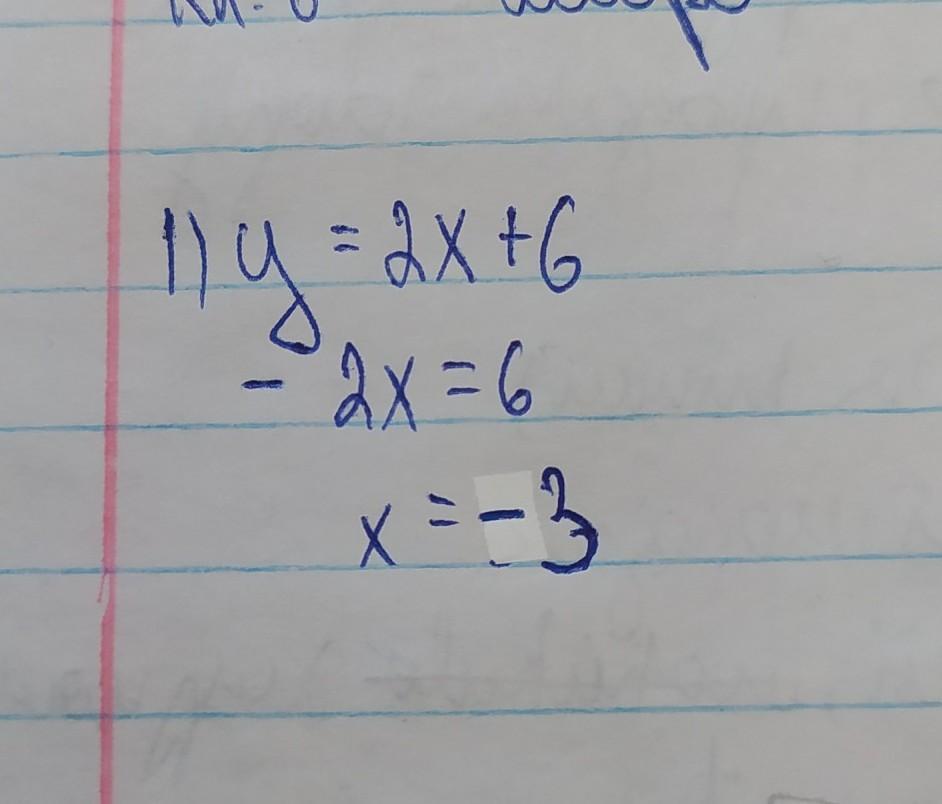 1) y = 2x + 6
- 2x = 6
x = - 3